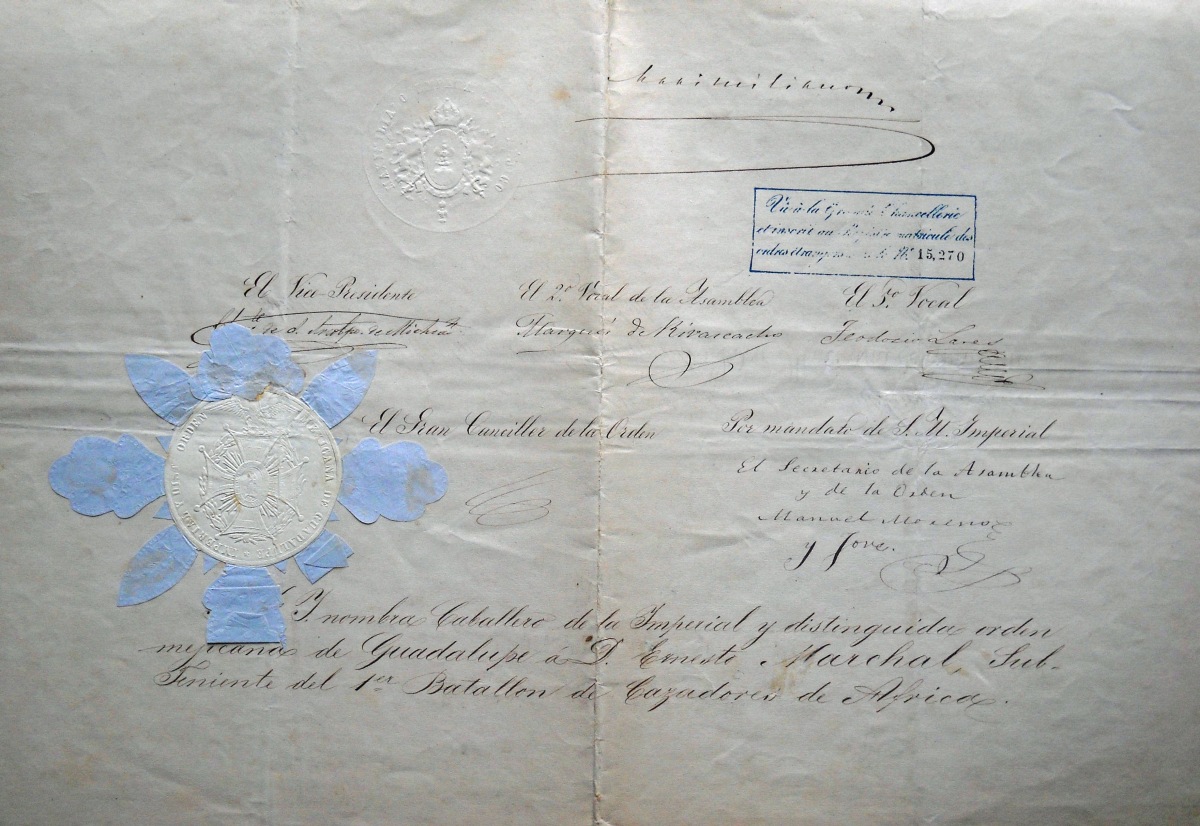 Maximiliano
Vu à la Grande Chancellerie
et inscrit au Registre matricule des
ordres étrangers Nº 15,270
El Vice Presidente
El 2º Vocal de la Asamblea
El 3º Vocal
Marqués de Rivascacho
Teodosio Lares
El Gran Canciller de la Orden
Por mandato de S. M. Imperial
El Secretario de la Asamblea
y de la Orden
Manuel Moreno
y Jove.
ORDEN MEJICANA DE GUADALUPE
nombra Caballero de la Imperial y distinguida orden
mejicana de Guadalupe á D. Ernesto Marchal, Sub-
Teniente del 1er Batallon de Cazadores de Africa.